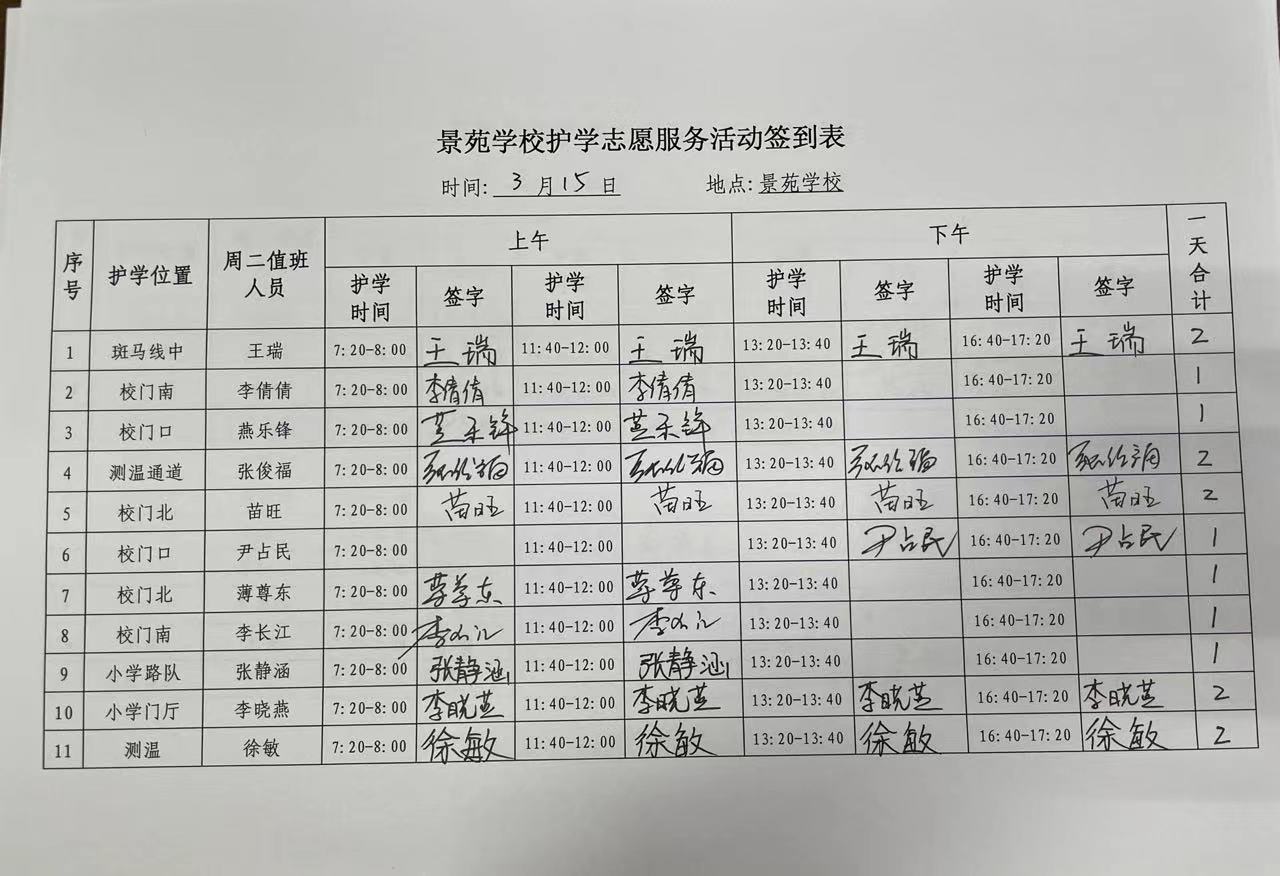 景苑学校护学志愿服务活动签到表
时间: 3 月 15 日 地点: 景苑学校
序号 护学位置 周二值班人员 上午 下午 一天合计
护学时间 签字 护学时间 签字 护学时间 签字 护学时间 签字
1 斑马线中 王瑞 7:20-8:00 王瑞 11:40-12:00 王瑞 13:20-13:40 王瑞 16:40-17:20 王瑞 2
2 校门南 李倩倩 7:20-8:00 李倩倩 11:40-12:00 李倩倩 13:20-13:40 16:40-17:20 1
3 校门口 燕乐锋 7:20-8:00 燕乐锋 11:40-12:00 燕乐锋 13:20-13:40 16:40-17:20 1
4 测温通道 张俊福 7:20-8:00 张俊福 11:40-12:00 张俊福 13:20-13:40 张俊福 16:40-17:20 张俊福 2
5 校门北 苗旺 7:20-8:00 苗旺 11:40-12:00 苗旺 13:20-13:40 苗旺 16:40-17:20 苗旺 2
6 校门口 尹占民 7:20-8:00 11:40-12:00 13:20-13:40 尹占民 16:40-17:20 尹占民 1
7 校门北 薄尊东 7:20-8:00 薄尊东 11:40-12:00 薄尊东 13:20-13:40 16:40-17:20 1
8 校门南 李长江 7:20-8:00 李长江 11:40-12:00 李长江 13:20-13:40 16:40-17:20 1
9 小学路队 张静涵 7:20-8:00 张静涵 11:40-12:00 张静涵 13:20-13:40 16:40-17:20 1
10 小学门厅 李晓燕 7:20-8:00 李晓燕 11:40-12:00 李晓燕 13:20-13:40 李晓燕 16:40-17:20 李晓燕 2
11 测温 徐敏 7:20-8:00 徐敏 11:40-12:00 徐敏 13:20-13:40 徐敏 16:40-17:20 徐敏 2